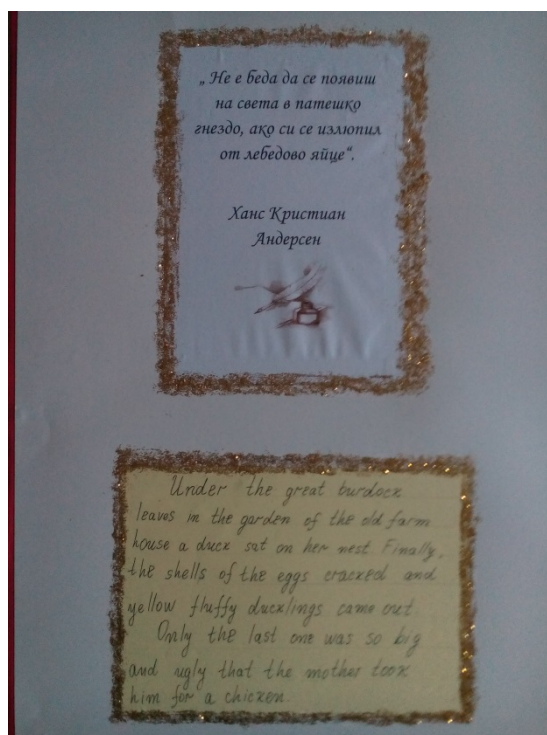 „ Не е беда да се появиш
на света в патешко
гнездо, ако си се излюпил
от лебедово яйце“.
Ханс Кристиан
Андерсен
Under the great burdock
leaves in the garden of the old farm
house a duck sat on her nest. Finally,
the shells of the eggs cracked and
yellow fluffy ducklings came out.
Only the last one was so big
and ugly that the mother took
him for a chicken.